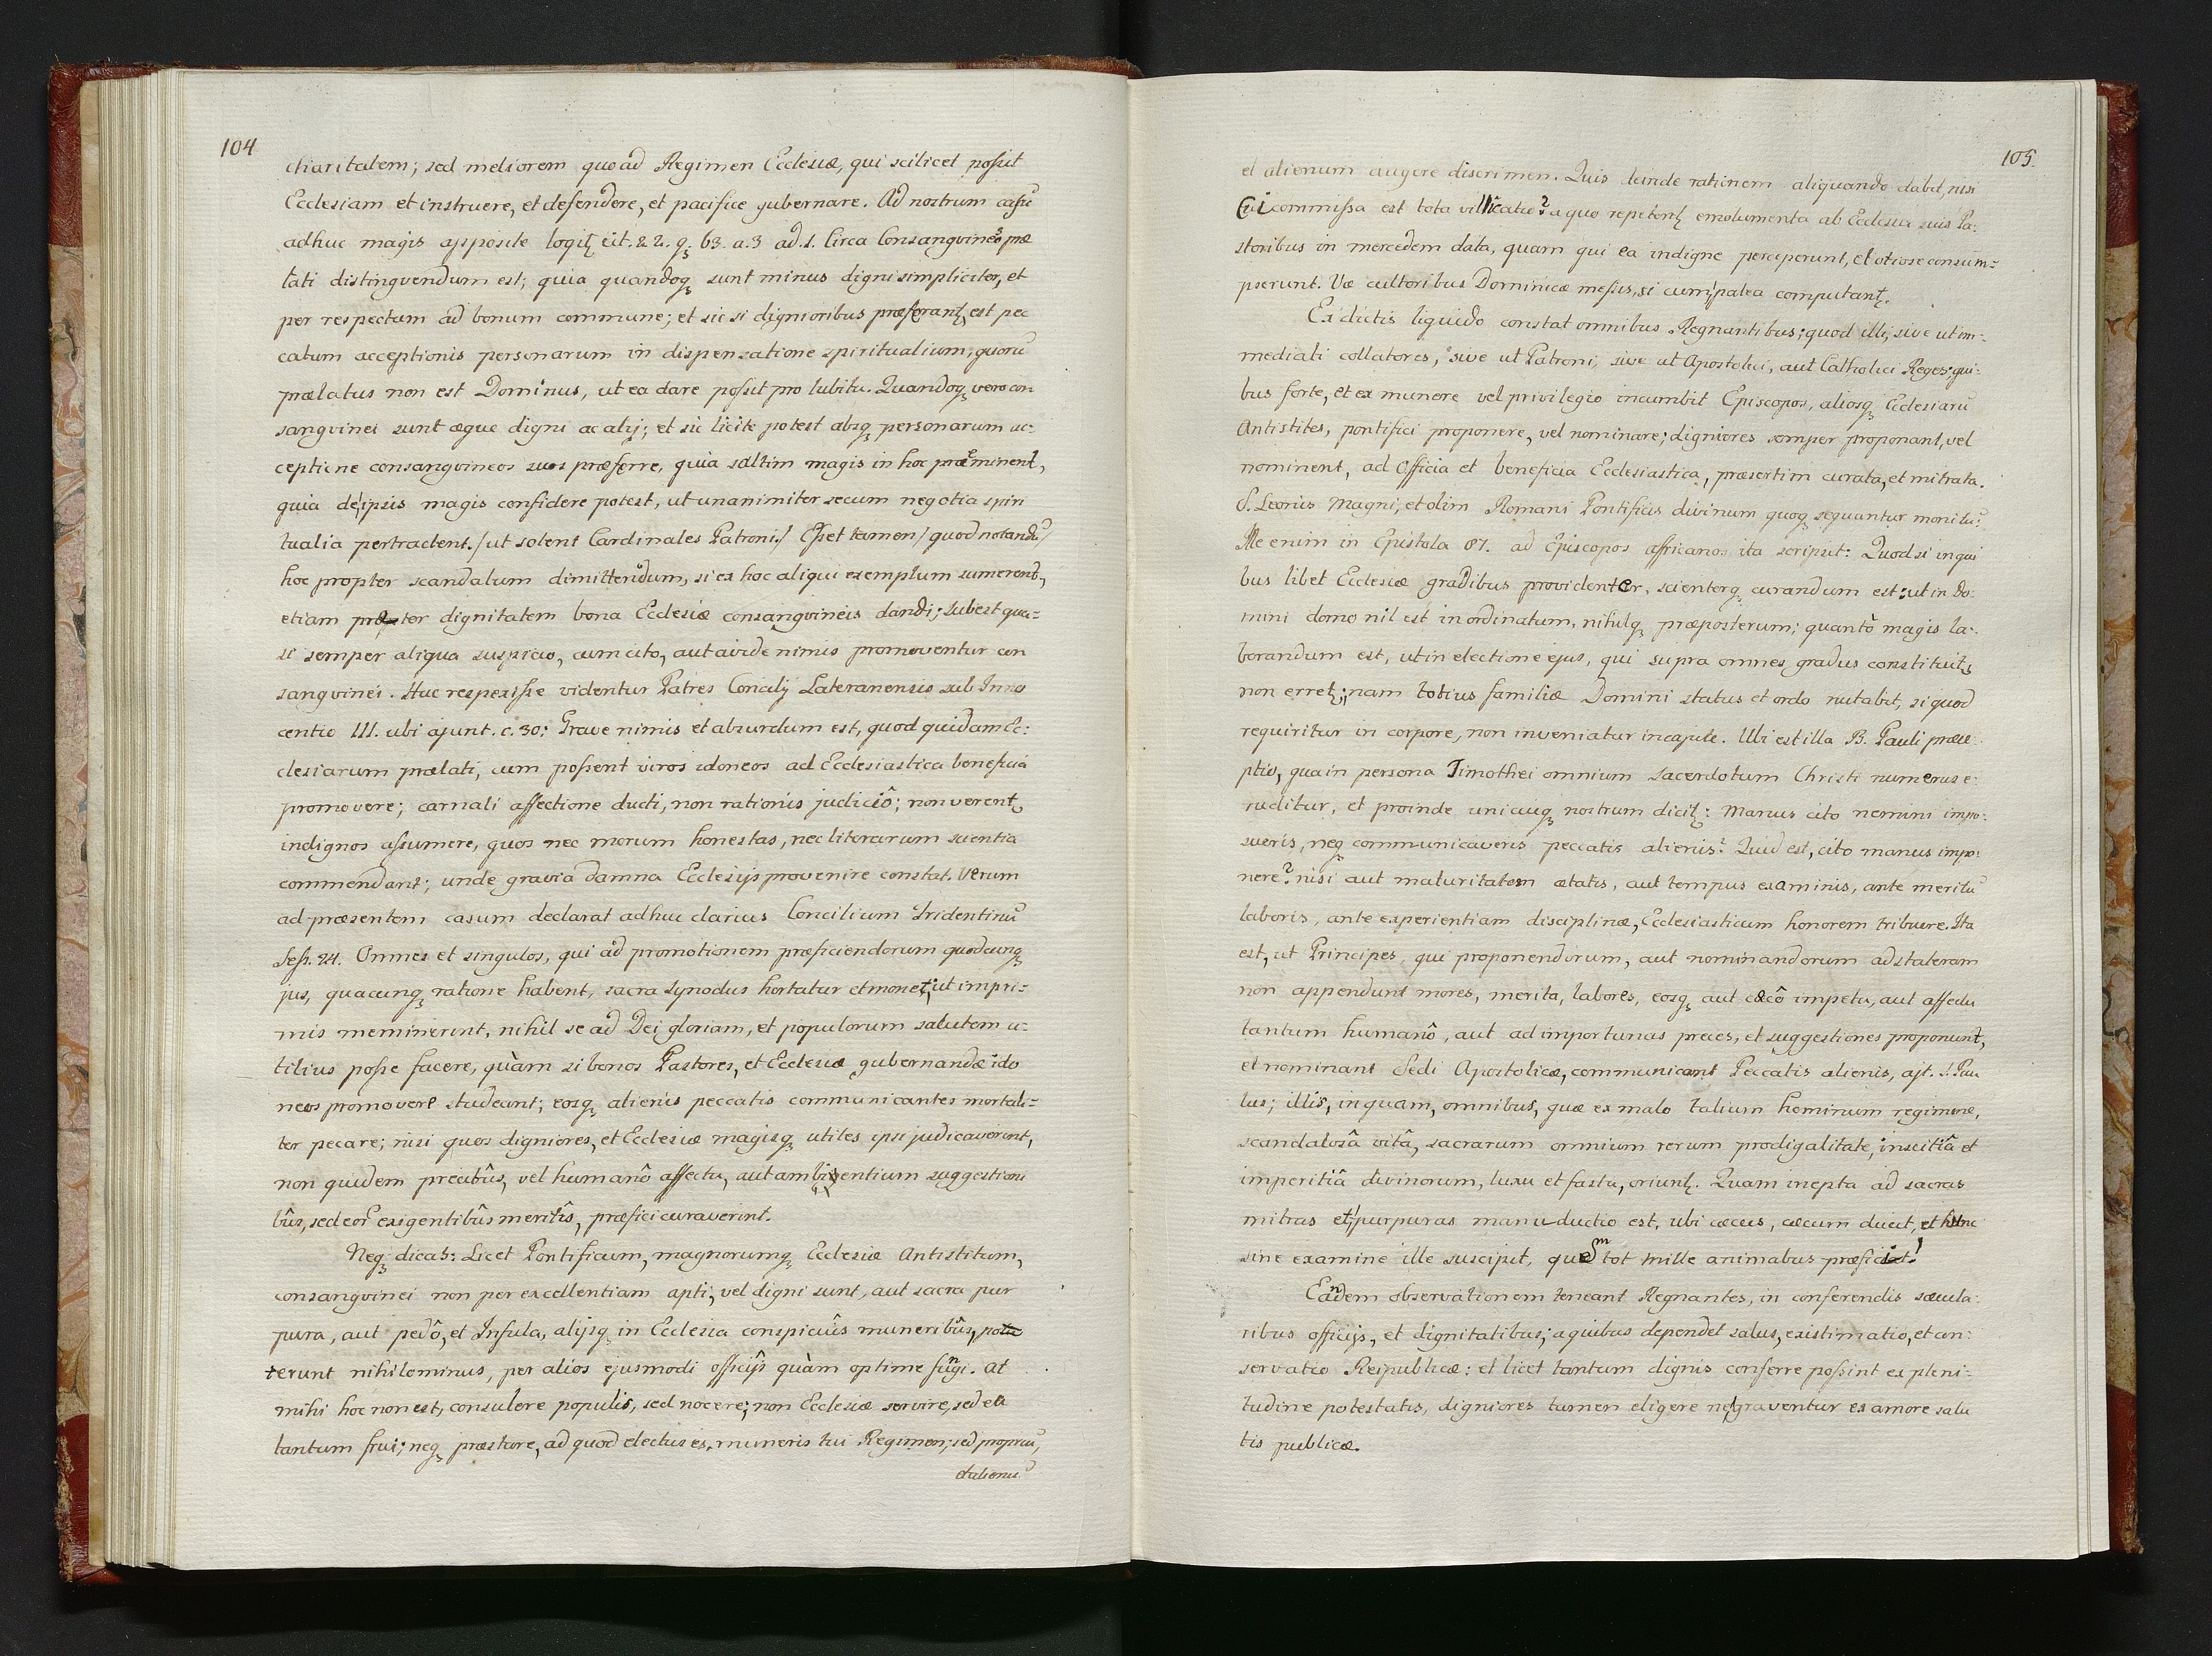 104
charitatem; sed meliorem quoad Regimen Ecclesiæ, qui scilicet possit
Ecclesiam et instruere, et defendere, et pacifice gubernare. Ad nostrum casū
adhuc magis apposite loqit̃ cit. 22. q. 63. a. 3 ad. 1. Circa Consangvineos præ
lati distingvendum est; quia quandoq̨ sunt minus digni simpliciter, et
per respectum ad bonum commune; et sic si dignioribus præferant̃, est pec
catum acceptionis personarum in dispensatione spiritualium, quorū
prælatus non est Dominus, ut ea dare possit pro lubitu. Quandoq̨ vero con
sangvinei sunt æque digni ac alij; et sic licite potest absq̨ personarum ac-
ceptione consangvineos suos præferre, quia saltim magis in hoc præeminent,
quia de ipsis magis confidere potest, ut unanimiter secum negotia spiri
tualia pertractent. /ut solent Cardinales Patroni./ Esset tamen /quod notandū/
hoc propter scandalum dimittendum, si ex hoc aliqui exemplum sumerent,
etiam præter dignitatem bona Ecclesiæ consangvineis dandi; subest qua-
si semper aliqua suspicio, cum cito, aut avide nimis promoventur con
sangvinei. Huc respexisse videntur Patres Concilij Lateranensis sub Inno
centio III. ubi ajunt. c. 30: Grave nimis et absurdum est, quod quidam Ec:
clesiarum prælati, cum possent viros idoneos ad Ecclesiastica beneficia
promovere; carnali affectione ducti, non rationis judiciô; non verent̃
indignos assumere, quos nec morum honestas, nec literarum scientia
commendant; unde gravia damna Ecclesijs provenire constat. Verum
ad præsentem casum declarat adhuc clarius Concilium Tridentinū
Sess. 24. Omnes et singulos, qui ad promotionem præficiendorum quodcunq̨
jus, quacunq̨ ratione habent, sacra Synodus hortatur et monet, ut impri-
mis meminerint, nihil se ad Dei gloriam, et populorum salutem u-
tilius posse facere, quàm si bonos Pastores, et Ecclesiæ gubernandæ ido
neos promovere studeant; eosq̨ alienis peccatis communicantes mortali-
ter pecare; nisi quos digniores, et Ecclesiæ magisq̨ utiles ipsi judicaverint,
non quidem precibûs, vel humanô affectu, aut ambientium suggestioni
bûs, sed eor exigentibûs meritîs, præfici curaverint.
Neq̨ dicas: Licet Pontificum, magnorumq̨ Ecclesiæ Antistitum,
consangvinei non per excellentiam apti, vel digni sunt, aut sacra pur
pura, aut pedô, et Infula, alijsq̨ in Ecclesia conspicuîs muneribûs, po
terunt nihilominus, per alios ejusmodi officijs quàm optime fungi. At
mihi hoc non est, consulere populis, sed nocere; non Ecclesiæ servire, sed ea
tantum frui; neq̨ præstare, ad quod electus es, muneris tui Regimen; sed propriū,
et alienū
105.
et alienum augere discrimen. Quis deinde rationem aliquando dabit, nisi
Cui commissa est tota villicatio? a quo repetent̃ emolumenta ab Ecclesia suis Pa:
storibus in mercedem data, quam qui ea indigne perceperunt, et otiose consum-
pserunt. Væ cultoribus Dominicæ messis, si cum palea computant̃.
Ex dictis liquido constat omnibus Regnantibus; quod illi, sive ut im-
mediati collatores, sive ut Patroni, sive ut Apostolici, aut Catholici Reges; qui-
bus forte, et ex munere vel privilegio incumbit Episcopos, aliosq̨ Ecclesiarū
Antistites, pontifici proponere, vel nominare; digniores semper proponant, vel
nominent, ad Officia et beneficia Ecclesiastica, præsertim curata, et mitrata.
S. Leonis Magni, et olim Romani Pontificis divinum quoq̨ sequantur monitū:
Ille enim in Epistola 87. ad Episcopos Affricanos ita scripsit: Quod si in qui
bus libet Ecclesiæ gradibus providenter, scienterq̨ curandum est: ut in Do-
mini domo nil est inordinatum, nihilq̨ præposterum; quantò magis la-
borandum est, ut in electione ejus, qui supra omnes gradus constituit̃,
non erret̃; nam totius familiæ Domini status et ordo nutabit, si quod
requiritur in corpore, non inveniatur in capite. Ubi est illa B. Pauli præce-
ptio, qua in persona Timothei omnium sacerdotum Christi numerus e-
ruditur, et proinde unicuiq̨ nostrum dicit̃: Manus cito nemini impo:
sueris, neq̨ communicaveris peccatis alienis? Quid est, cito manus impo:
nere? nisi aut maturitatem ætatis, aut tempus examinis, ante meritū
laboris, ante experientiam disciplinæ, Ecclesiasticum honorem tribuere. Ita
est, ut Principes qui proponendorum, aut nominandorum ad stateram
non appendunt mores, merita, labores, eosq̨ aut cæcô impetu, aut affectu
tantum humanô, aut ad importunas preces, et suggestiones proponunt,
et nominant Sedi Apostolicæ, communicant Peccatis alienis, ajt. S. Pau
lus; illis, inquam, omnibus, quæ ex malo talium hominum regimine,
scandalosâ vitâ, sacrarum omnium rerum prodigalitate, inscitiâ et
imperitiâ divinorum, luxu et fastu, oriunt̃. Quam inepta ad sacras
mitras et purpuras manuductio est, ubi cæcus, cæcum ducit, et hunc
sine examine ille suscipit, quem tot mille animabus præficit!
Eandem observationem teneant Regnantes, in conferendis sæcula-
ribus officijs, et dignitatibus; a quibus dependet salus, existimatio, et con-
servatio Reipublicæ: et licet tantum dignis conferre possint ex pleni-
tudine potestatis, digniores tamen eligere ne graventur ex amore salu
tis publicæ.